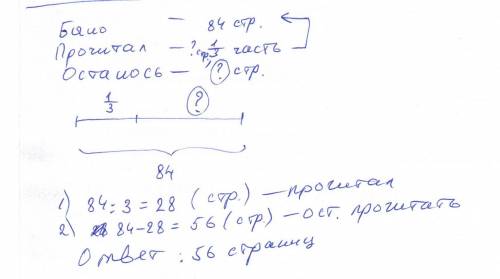 Было — 84 стр.
Прочитал — ? стр, 1/3 часть
Осталось — ? стр.
1/3 ?
84
1) 84:3 = 28 (стр.) — прочитал
2) 84-28 = 56 (стр) — ост. прочитать
Ответ: 56 страниц